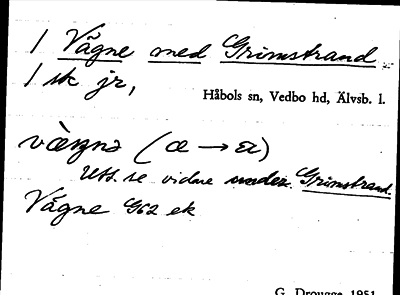 1 Vägne med Grimstrand
1 sk jr,
Håbols sn, Vedbo hd, Älvsb. l.
væ̀ŋnə (æ → ɛ)
Utt. se vidare under Grimstrand.
Vägne G62 ek
G. Drougge 1951